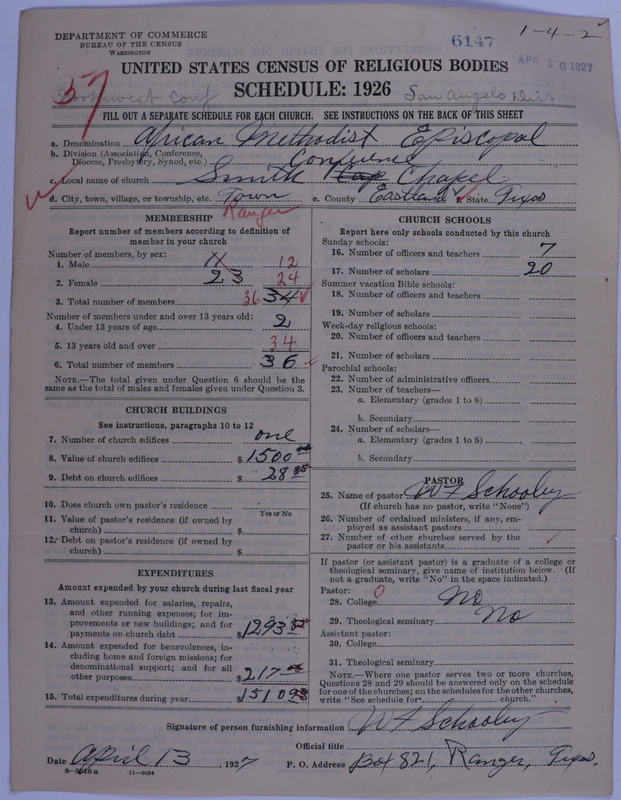 DEPARTMENT OF COMMERCE
BUREAU OF THE CENSUS
WASHINGTON
6147
1-4-2
APR 18 1927
57
UNITED STATES CENSUS OF RELIGIOUS BODIES
SCHEDULE: 1926
Northwest Conf
San Angelo Dist
FILL OUT A SEPARATE SCHEDULE FOR EACH CHURCH. SEE INSTRUCTIONS ON THE BACK OF THIS SHEET
a. Denomination African Methodist Episcopal
b. Division (Association, Conference, Diocese, Presbytery, Synod, etc.) Conference
c. Local name of church Smith Cap Chapel
d. City, town, village, or township, etc. Town e. County Eastland f. State Texas
Ranger
MEMBERSHIP
Report number of members according to definition of
member in your church
Number of members, by sex:
1. Male 11 12
2. Female 23 24
3. Total number of members 36 34
Number of members under and over 13 years old:
4. Under 13 years of age 2
5. 13 years old and over 34
6. Total number of members 36
NOTE.—The total given under Question 6 should be the
same as the total of males and females given under Question 3.
CHURCH BUILDINGS
See instructions, paragraphs 10 to 12
7. Number of church edifices one
8. Value of church edifices $1500
9. Debt on church edifices $ 28
10. Does church own pastor's residence
Yes or No
11. Value of pastor's residence (if owned by
church) $
12. Debt on pastor's residence (if owned by
church) $
EXPENDITURES
Amount expended by your church during last fiscal year
13. Amount expended for salaries, repairs,
and other running expenses; for im-
provements or new buildings; and for
payments on church debt $1293
14. Amount expended for benevolences, in-
cluding home and foreign missions; for
denominational support; and for all
other purposes $217
15. Total expenditures during year $1510
CHURCH SCHOOLS
Report here only schools conducted by this church
Sunday schools:
16. Number of officers and teachers 7
17. Number of scholars 20
Summer vacation Bible schools:
18. Number of officers and teachers
19. Number of scholars
Week-day religious schools:
20. Number of officers and teachers
21. Number of scholars
Parochial schools:
22. Number of administrative officers
23. Number of teachers—
a. Elementary (grades 1 to 8)
b. Secondary
24. Number of scholars—
a. Elementary (grades 1 to 8)
b. Secondary
PASTOR
25. Name of pastor W F Schooley
(If church has no pastor, write "None")
26. Number of ordained ministers, if any, em-
ployed as assistant pastors
27. Number of other churches served by the
pastor or his assistants
If pastor (or assistant pastor) is a graduate of a college or
theological seminary, give name of institution below. (If
not a graduate, write "No" in the space indicated.)
Pastor: 0
28. College No
29. Theological seminary No
Assistant pastor:
30. College
31. Theological seminary
NOTE.—Where one pastor serves two or more churches,
Questions 28 and 29 should be answered only on the schedule
for one of the churches; on the schedules for the other churches,
write "See schedule for church."
Signature of person furnishing information W F Schooley
Official title
Date April 13, 1927 P. O. Address Box 821, Ranger, Texas.
11—9034